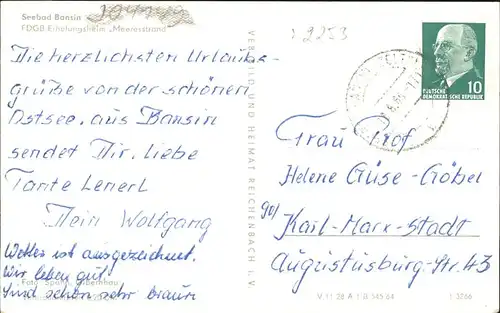 Seebad Bansin
FDGB-Erholungsheim „Meeresstrand“
2253
DEUTSCHE
DEMOKRATISCHE REPUBLIK
10
Die herzlichsten Urlaubs-
grüße von der schönen
Ostsee, aus Bansin
sendet Dir, liebe
Tante Lenerl
Dein Wolfgang
Wetter ist ausgezeichnet.
Wir leben gut!
Sind schon sehr braun
VERLAG BILD UND HEIMAT REICHENBACH I. V.
Frau Prof
Helene Güse-Göbel
901 Karl-Marx-Stadt
Augustusburg-Str. 43
Foto
V 11 28 A 1 B 545/64